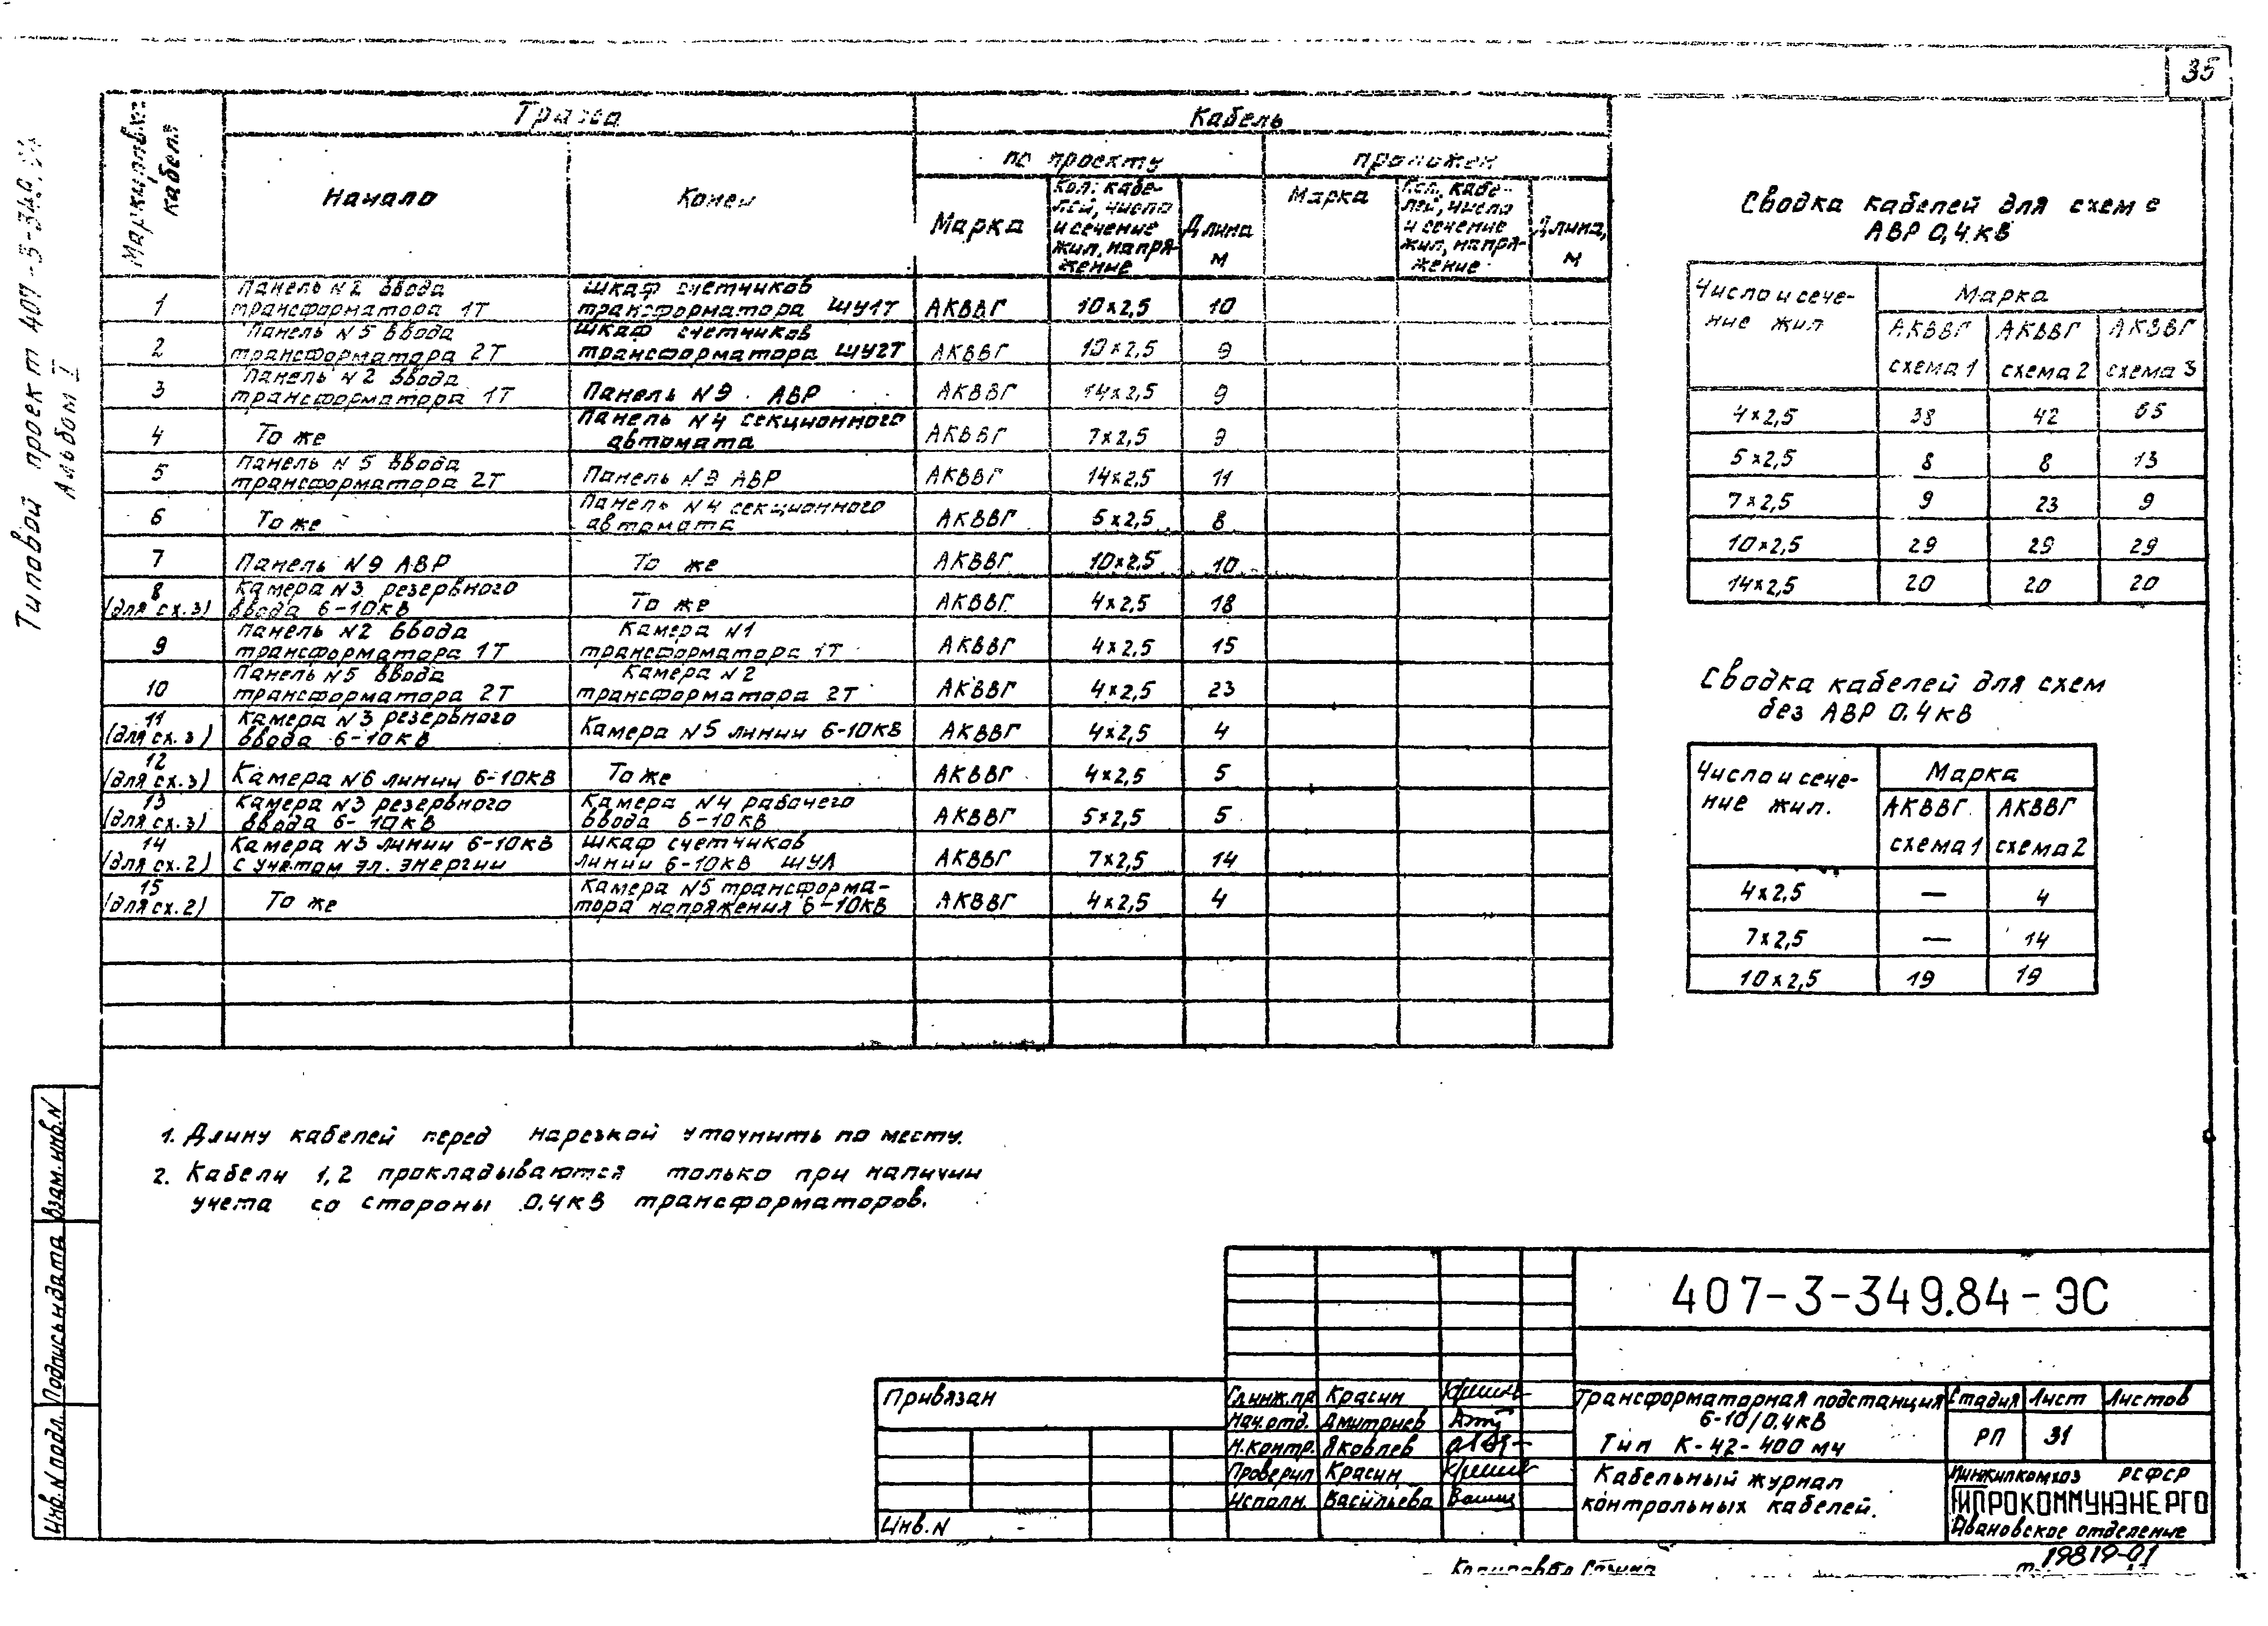 35
Типовой проект 407-3-349.84
Альбом I
Маркировка кабеля
Трасса
Кабель
Начало
Конец
по проекту
проложен
Марка
Кол. кабелей, число и сечение жил, напряжение
Длина м
Марка
Кол. кабелей, число и сечение жил, напряжение
Длина, м
1 Панель N2 ввода трансформатора 1Т Шкаф счетчиков трансформатора ШУ1Т АКВВГ 10х2,5 10
2 Панель N5 ввода трансформатора 2Т Шкаф счетчиков трансформатора ШУ2Т АКВВГ 10х2,5 9
3 Панель N2 ввода трансформатора 1Т Панель N9 АВР АКВВГ 14х2,5 9
4 То же Панель N4 секционного автомата АКВВГ 7х2,5 9
5 Панель N5 ввода трансформатора 2Т Панель N9 АВР АКВВГ 14х2,5 11
6 То же Панель N4 секционного автомата АКВВГ 5х2,5 8
7 Панель N9 АВР То же АКВВГ 10х2,5 10
8 (для сх.3) Камера N3 резервного ввода 6-10кВ То же АКВВГ 4х2,5 18
9 Панель N2 ввода трансформатора 1Т Камера N1 трансформатора 1Т АКВВГ 4х2,5 15
10 Панель N5 ввода трансформатора 2Т Камера N2 трансформатора 2Т АКВВГ 4х2,5 23
11 (для сх.3) Камера N3 резервного ввода 6-10кВ Камера N5 линии 6-10кВ АКВВГ 4х2,5 4
12 (для сх.3) Камера N6 линии 6-10кВ То же АКВВГ 4х2,5 5
13 (для сх.3) Камера N3 резервного ввода 6-10кВ Камера N4 рабочего ввода 6-10кВ АКВВГ 5х2,5 5
14 (для сх.2) Камера N3 линии 6-10кВ с учетом эл. энергии Шкаф счетчиков линии 6-10кВ ШУЛ АКВВГ 7х2,5 14
15 (для сх.2) То же Камера N5 трансформатора напряжения 6-10кВ АКВВГ 4х2,5 4
Сводка кабелей для схем с
АВР 0,4 кВ
Число и сечение жил
Марка
АКВВГ схема 1 АКВВГ схема 2 АКВВГ схема 3
4х2,5 38 42 65
5х2,5 8 8 13
7х2,5 9 23 9
10х2,5 29 29 29
14х2,5 20 20 20
Сводка кабелей для схем
без АВР 0.4кВ
Число и сечение жил.
Марка
АКВВГ схема 1 АКВВГ схема 2
4х2,5 — 4
7х2,5 — 14
10х2,5 19 19
1. Длину кабелей перед нарезкой уточнить по месту.
2. Кабели 1,2 прокладываются только при наличии
учета со стороны 0.4кВ трансформаторов.
Взам.инв.N
Подпись и дата
Инв.N подл.
Привязан
Инв.N
Гл.инж.пр Красин
Нач.отд. Дмитриев
Н.контр. Яковлев
Проверил Красин
Исполн. Васильева
407-3-349.84-ЭС
Трансформаторная подстанция
6-10/0.4кВ
Тип К-42-400 м4
Стадия Лист Листов
РП 31
Кабельный журнал
контрольных кабелей.
Минжилкомхоз РСФСР
ГИПРОКОММУНЭНЕРГО
Ивановское отделение
19819-01
Копировал